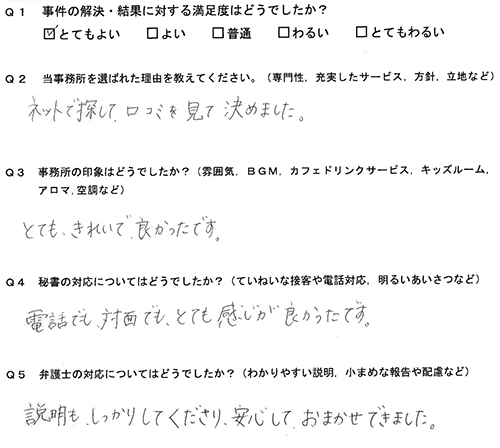 Q1 事件の解決・結果に対する満足度はどうでしたか？
☑とてもよい □よい □普通 □わるい □とてもわるい
Q2 当事務所を選ばれた理由を教えてください。（専門性，充実したサービス，方針，立地など）
ネットで探して、口コミを見て決めました。
Q3 事務所の印象はどうでしたか？（雰囲気，ＢＧＭ，カフェドリンクサービス，キッズルーム，
アロマ，空調など）
とても、きれいで、良かったです。
Q4 秘書の対応についてはどうでしたか？（ていねいな接客や電話対応，明るいあいさつなど）
電話でも、対面でも、とても感じが良かったです。
Q5 弁護士の対応についてはどうでしたか？（わかりやすい説明，小まめな報告や配慮など）
説明も、しっかりしてくださり、安心して、おまかせできました。